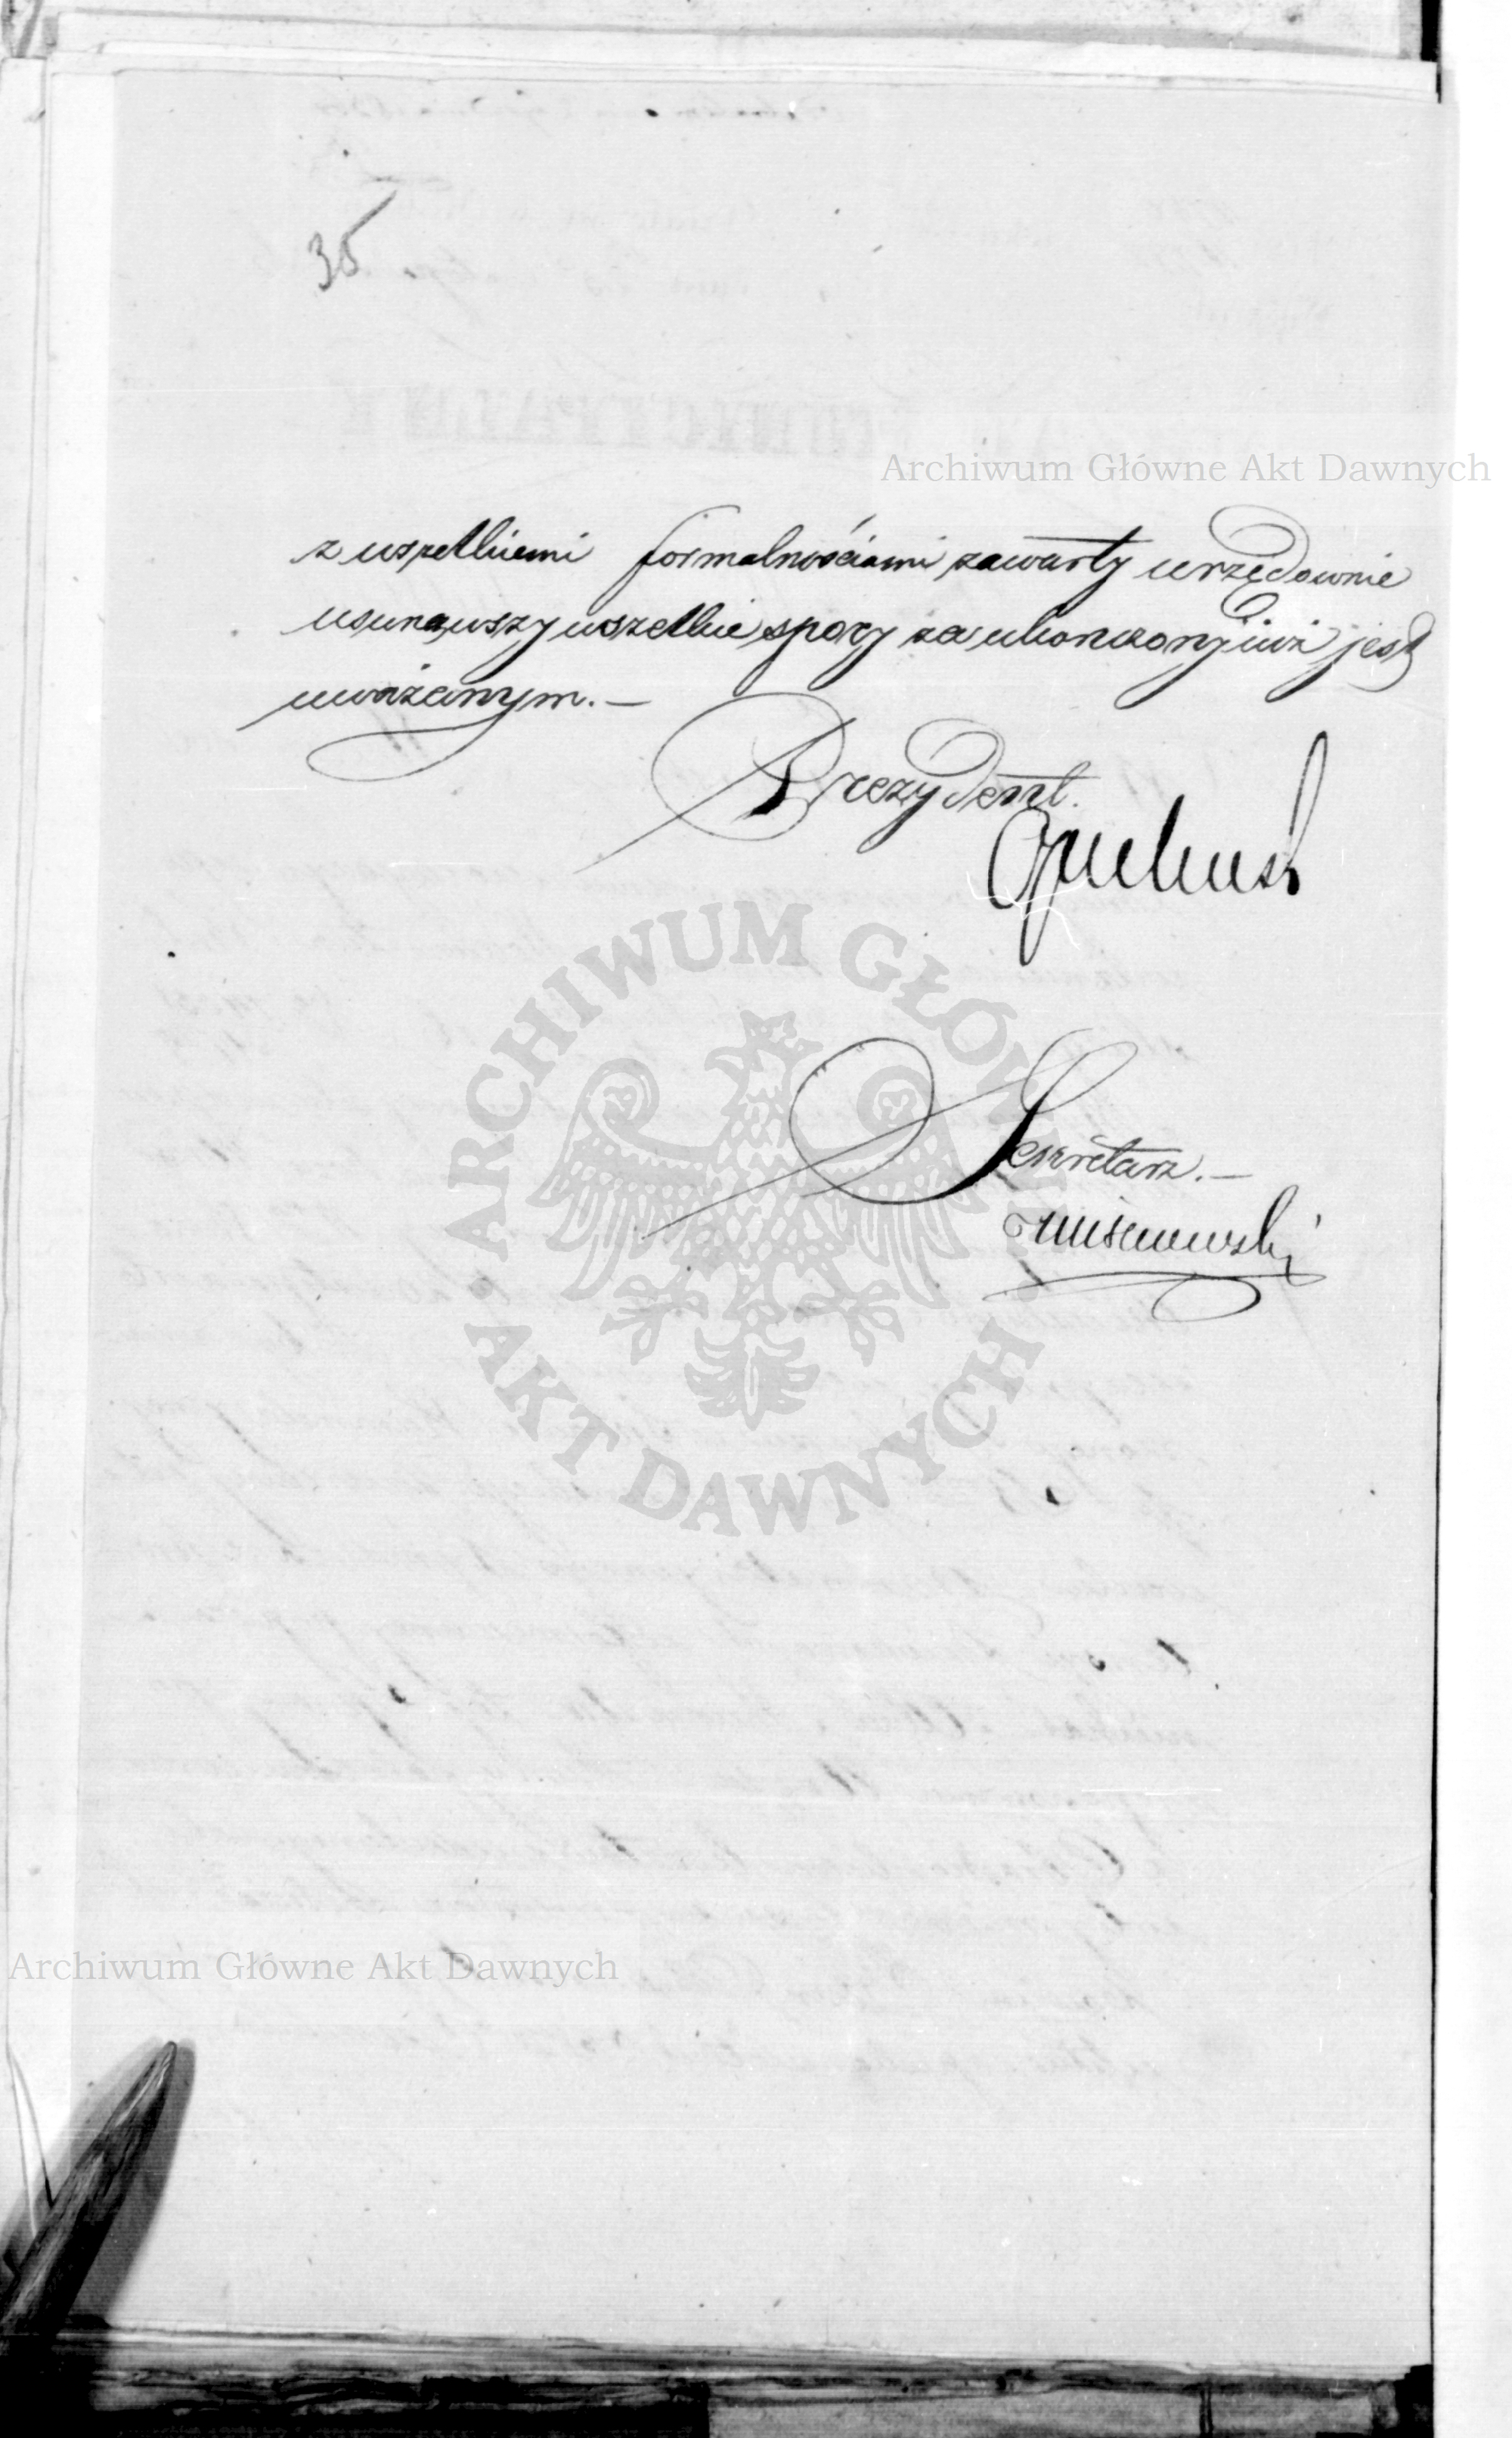 35
Archiwum Główne Akt Dawnych
z wszelkiemi formalnościami zawarty urzędownie
usunąwszy wszelkie spory za ukończony iuż jest
uważanym. —
Prezydent.
Sekretarz. —
ARCHIWUM GŁÓWNE AKT DAWNYCH
Archiwum Główne Akt Dawnych